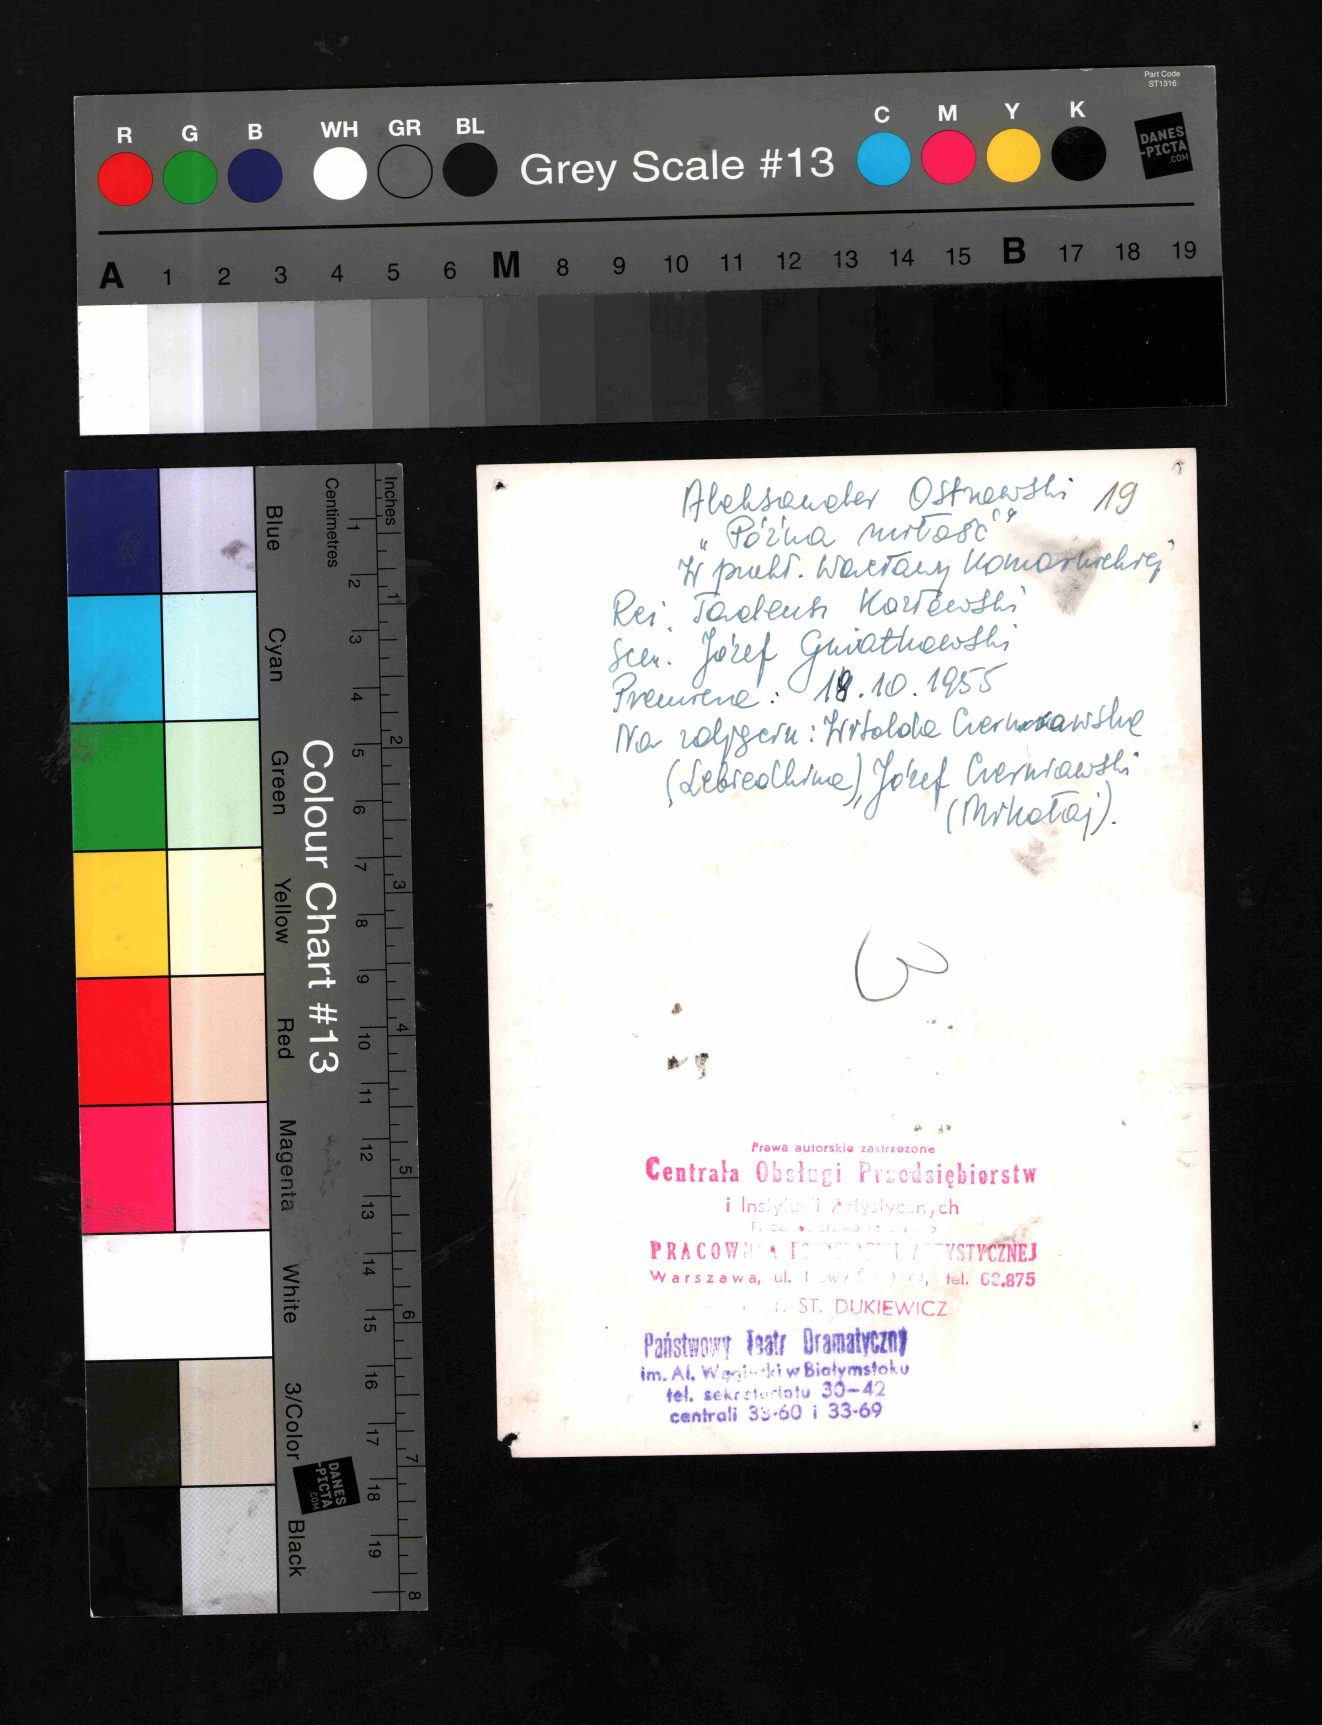 Part Code
ST1316
R G B WH GR BL Grey Scale #13 C M Y K
DANES
-PICTA
.COM
A 1 2 3 4 5 6 M 8 9 10 11 12 13 14 15 B 17 18 19
Colour Chart #13
Blue
Cyan
Green
Yellow
Red
Magenta
White
3/Color
Black
Centimetres
1 2 3 4 5 6 7 8 9 10 11 12 13 14 15 16 17 18 19
Inches
1 2 3 4 5 6 7 8
DANES
-PICTA
.COM
Aleksander Ostrowski 19
„Późna miłość"
W przekł. Wacławy Komarnickiej
Reż. Tadeusz Kozłowski
Scen. Józef Gniatkowski
Premiera: 18.10.1955
Na zdjęciu: Witolda Czerniawska
(Lebiedkina), Józef Czerniawski
(Mikołaj).
3
Prawa autorskie zastrzeżone
Centrala Obsługi Przedsiębiorstw
i Instytucji Artystycznych
PRACOWNIA ARTYSTYCZNEJ
Warszawa, ul. tel. 62.875
ST. DUKIEWICZ
Państwowy Teatr Dramatyczny
im. Al. Węgierki w Białymstoku
tel. sekretariatu 30-42
centrali 33-60 i 33-69